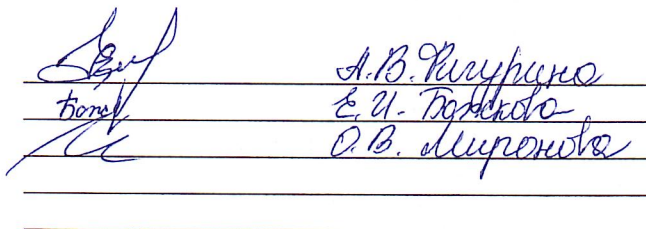 А.В. Фигурина
Е.И. Божкова
О.В. Миронова